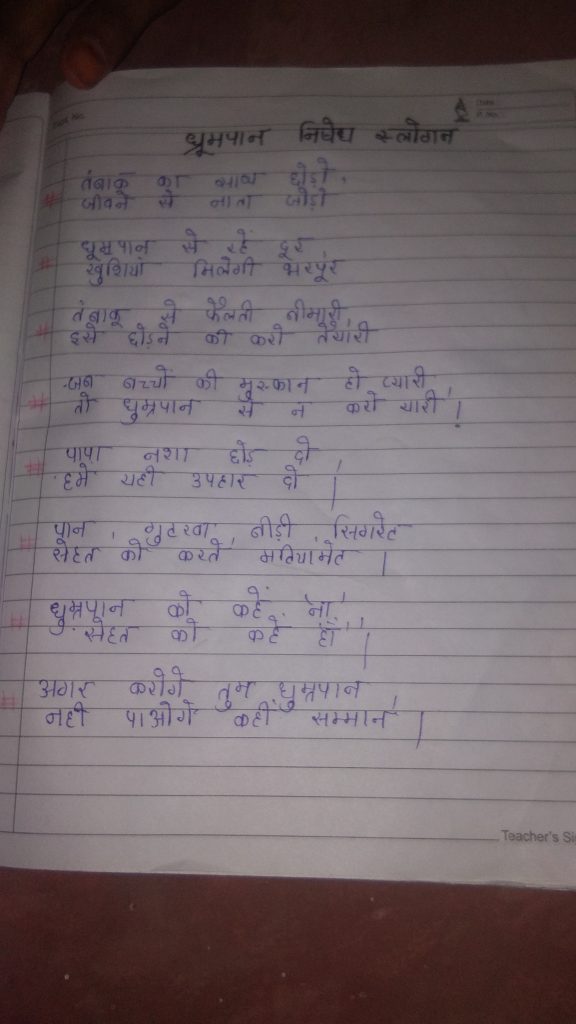 धूम्रपान निषेध स्लोगन
तंबाकू का साथ छोड़ो,
जीवन से नाता जोड़ो
धूम्रपान से रहें दूर
खुशियां मिलेगी भरपूर
तंबाकू से फैलती बीमारी,
इसे छोड़ने की करो तैयारी
जब बच्चों की मुस्कान हो प्यारी,
तो धुम्रपान से न करो यारी !
पापा नशा छोड़ दो,
हमें यही उपहार दो |
पान, गुटखा, बीड़ी, सिगरेट
सेहत को करते मटियामेट |
धुम्रपान को कहें 'ना',
सेहत को कहें 'हाँ' |
अगर करोगे तुम धुम्रपान,
नहीं पाओगे कहीं सम्मान |
Teacher's Si